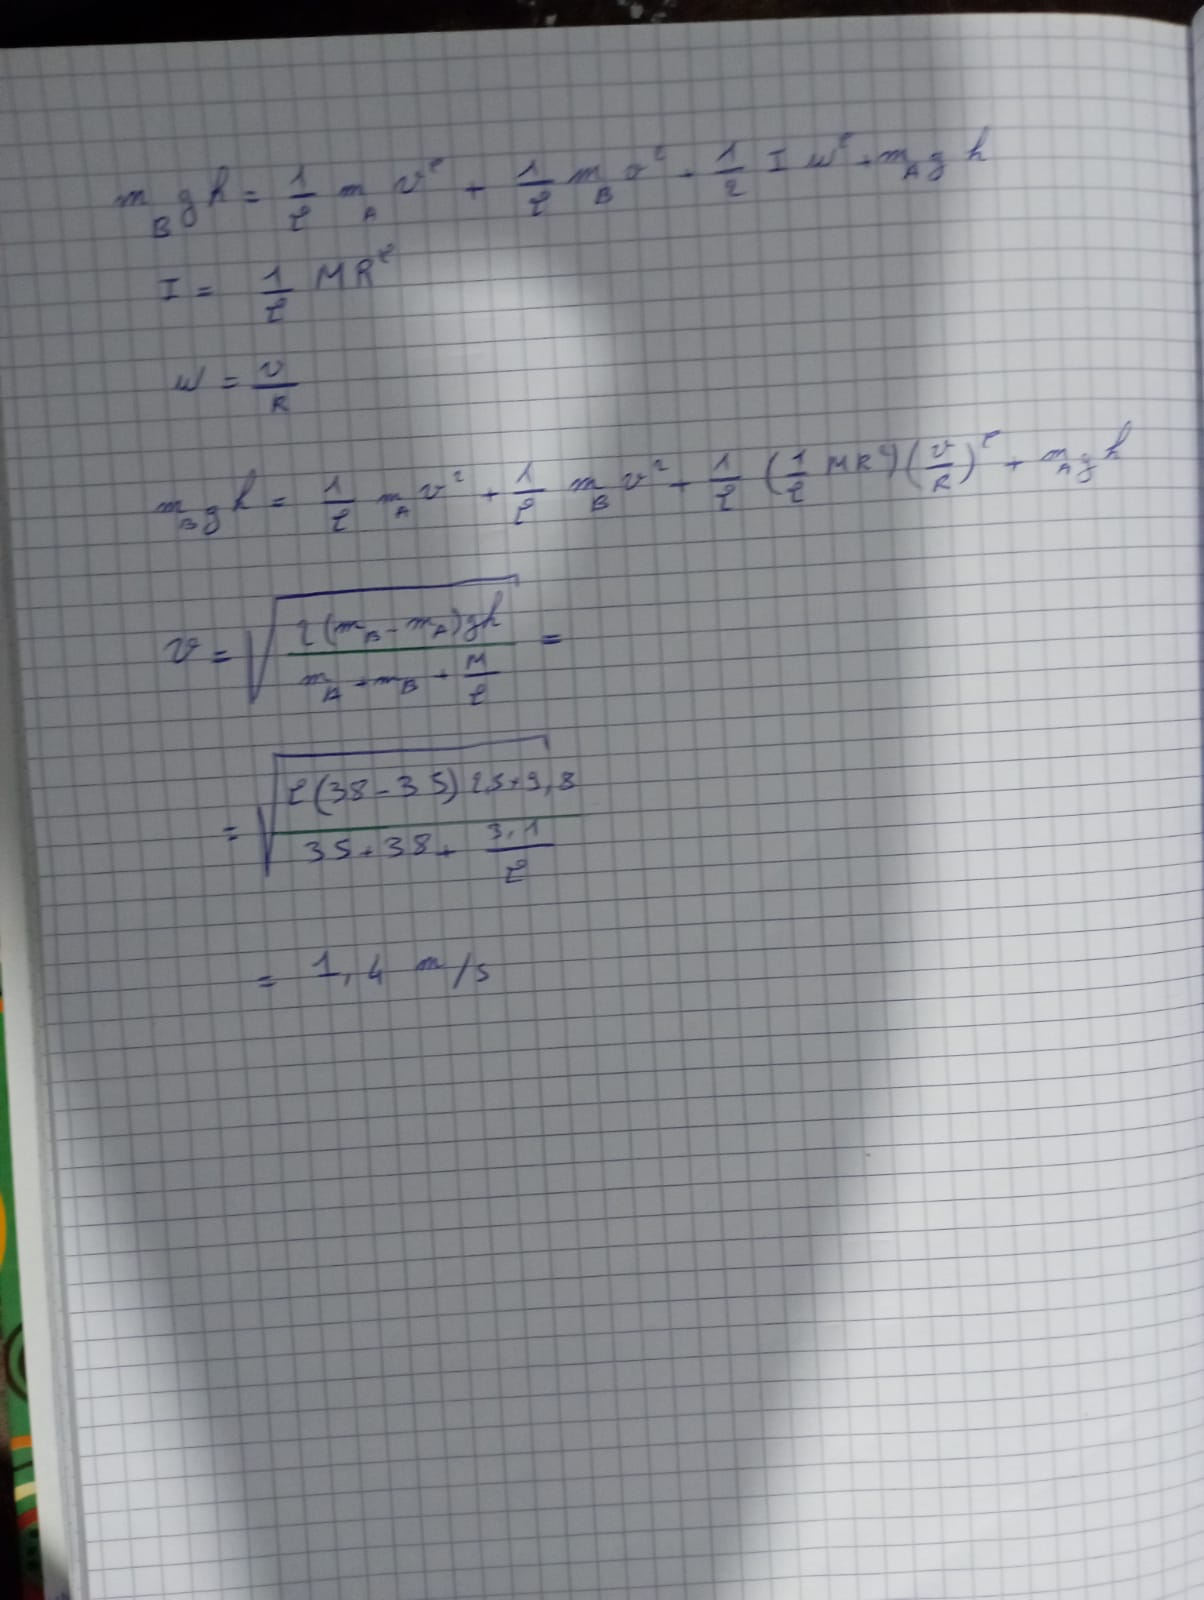 m_B g h = 1/2 m_A v² + 1/2 m_B v² + 1/2 I w² + m_A g h
I = 1/2 MR²
w = v/R
m_B g h = 1/2 m_A v² + 1/2 m_B v² + 1/2 (1/2 MR²)(v/R)² + m_A g h
v = √(2(m_B - m_A)gh / (m_A + m_B + M/2)) =
= √(2(38-35) 2,5 · 9,8 / (35 + 38 + 3,1/2))
= 1,4 m/s